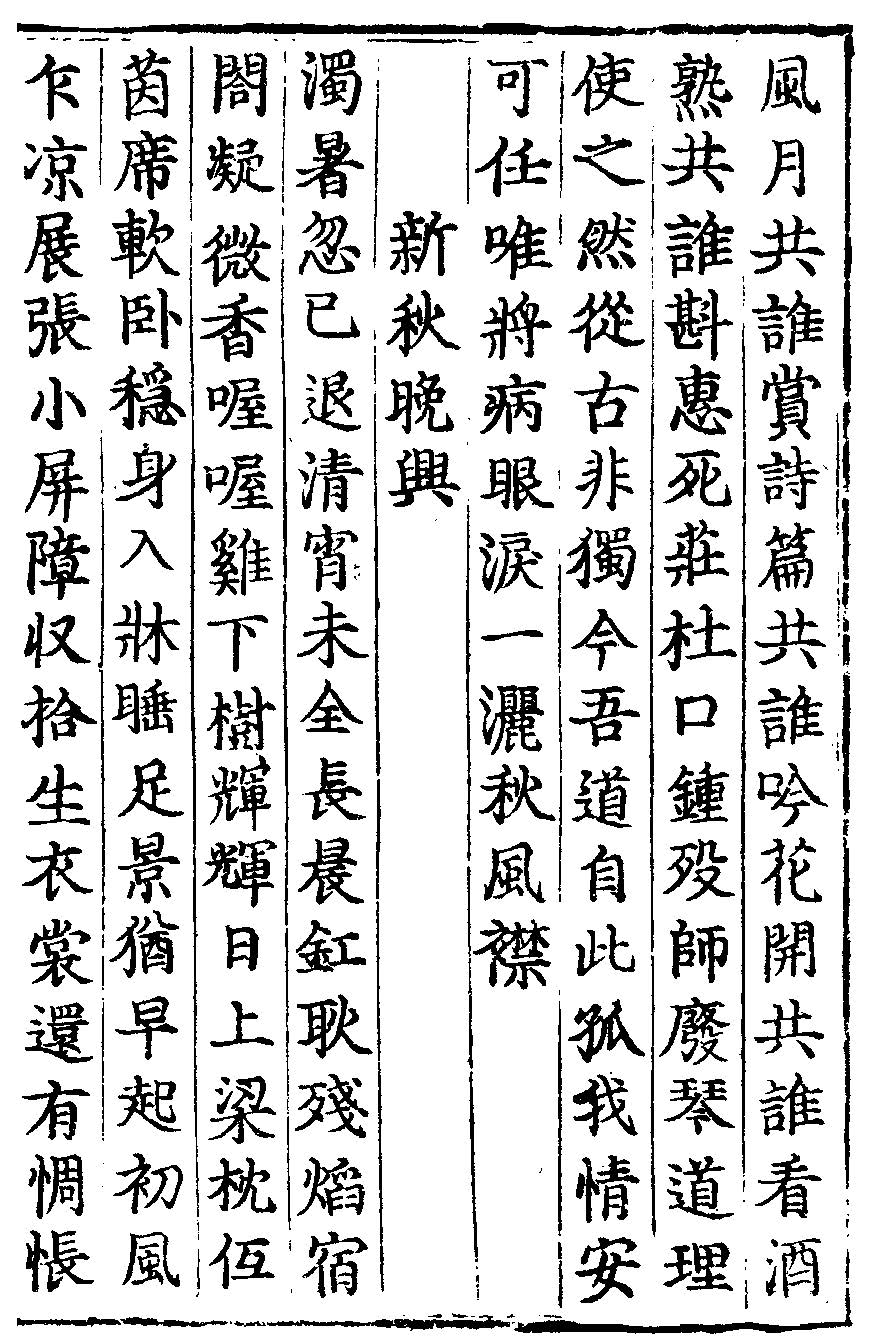 風月共誰賞詩篇共誰吟花開共誰看酒
熟共誰斟惠死莊杜口鍾歿師廢琴道理
使之然從古非獨今吾道自此孤我情安
可任唯將病眼淚一灑秋風襟
新秋晚興
濁暑忽已退清宵未全長晨釭耿殘焰宿
閤凝微香喔喔雞下樹輝輝日上梁枕低
茵席軟卧穩身入牀睡足景猶早起初風
乍凉展張小屏障収拾生衣裳還有惆悵